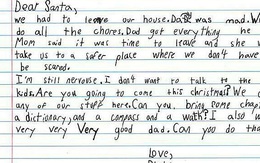 Dear Santa,
we had to leave our house. Dad was mad. W
do all the chores. Dad got everything he
Mom said it was time to leave and she w
take us to a safer place where we don't have
be scared.
I'm still nervouse. I don't want to talk to the
kids. Are you going to come this christmas? We d
any of our stuff here. Can you bring some chap
a dictionary, and a compass and a wath? I also w
very very very good dad. Can you do tha
Love,